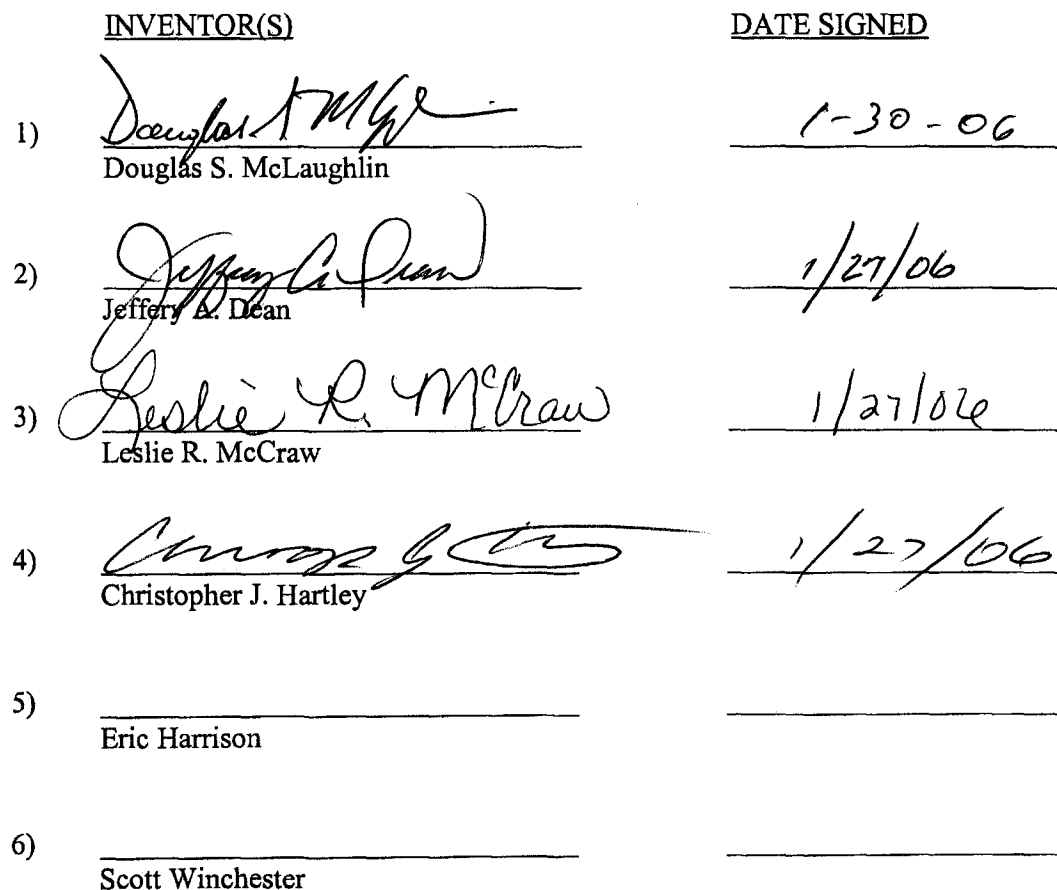 INVENTOR(S) DATE SIGNED
1) Douglas S McL 1-30-06
Douglas S. McLaughlin
2) Jeffery A. Dean 1/27/06
Jeffery A. Dean
3) Leslie R. McCraw 1/27/06
Leslie R. McCraw
4) 1/27/06
Christopher J. Hartley
5)
Eric Harrison
6)
Scott Winchester